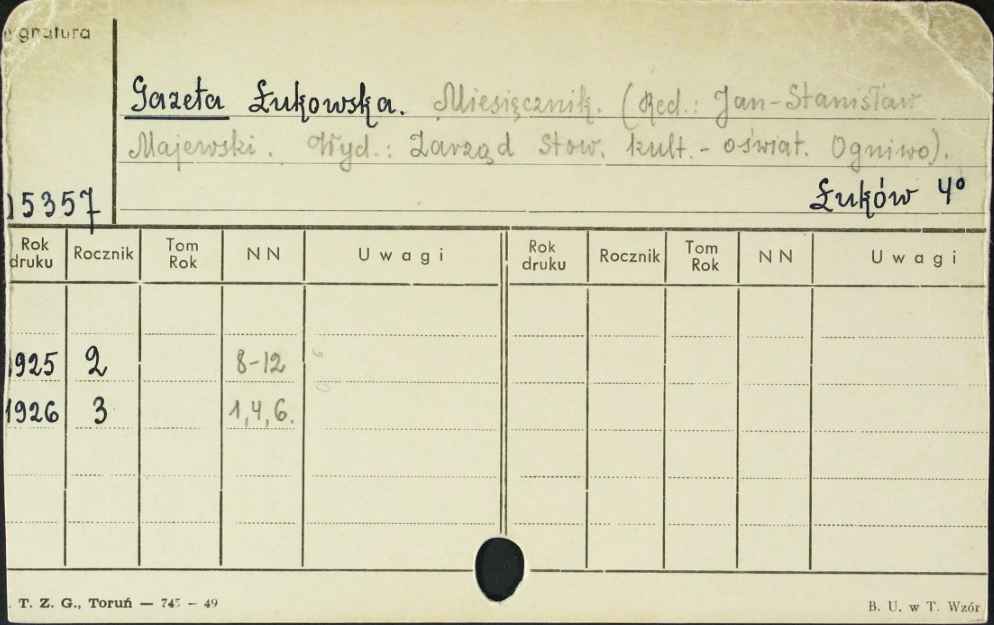 gnatura
Gazeta Łukowska. Miesięcznik. (Red.: Jan-Stanisław
Majewski. Wyd.: Zarząd Stow. kult.-oświat. Ogniwo).
Łuków 4°
15357
Rok druku Rocznik Tom Rok NN Uwagi Rok druku Rocznik Tom Rok NN Uwagi
1925 2 8-12
1926 3 1,4,6.
T. Z. G., Toruń — 745 – 49
B. U. w T. Wzór